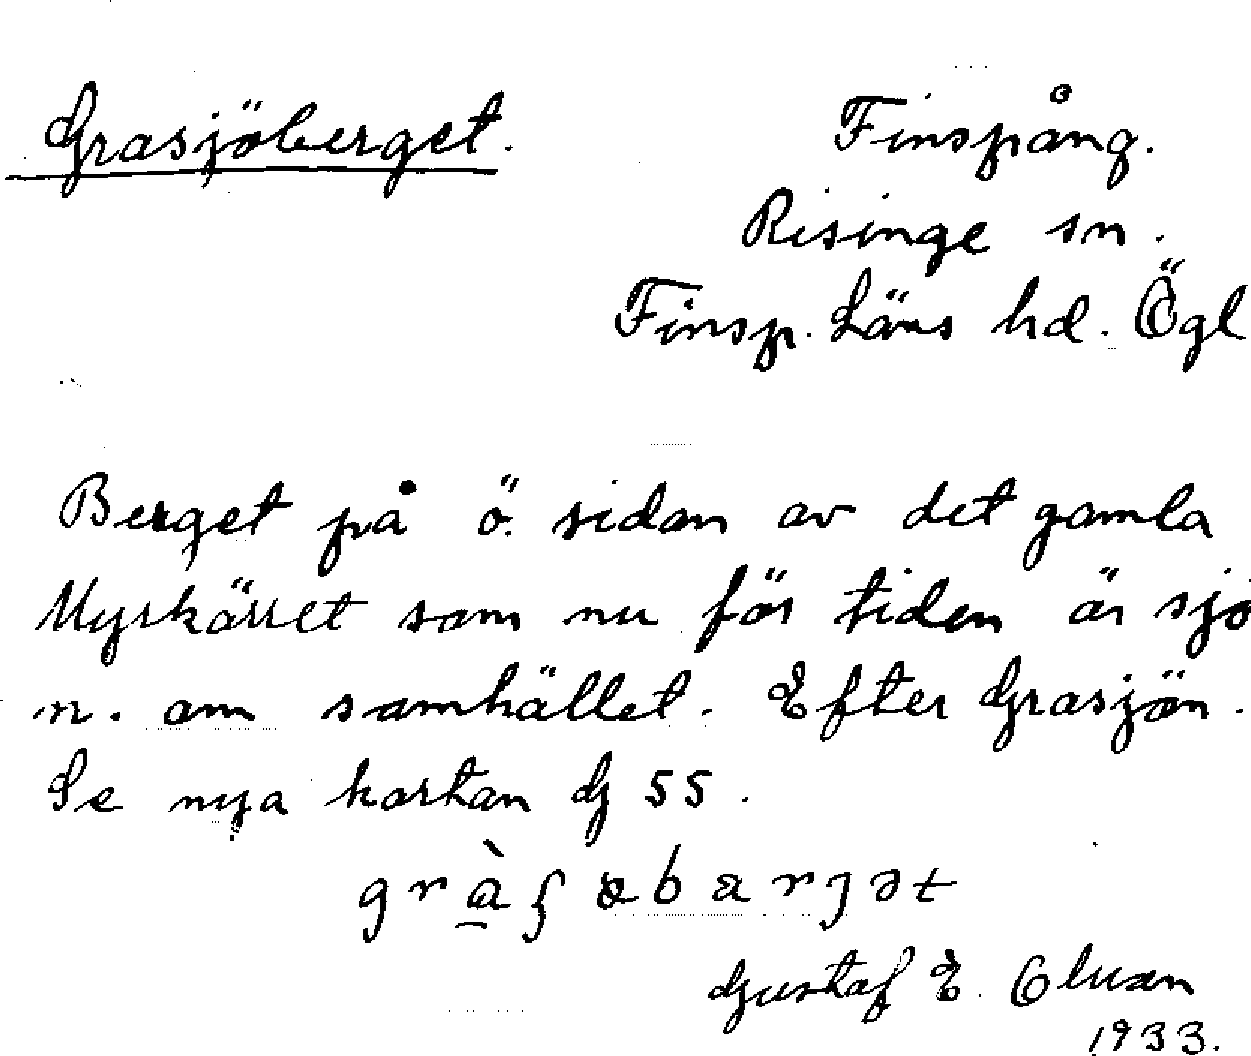 Grasjöberget.
Finspång.
Risinge sn.
Finsp. Läns hd. Ögl
Berget på ö. sidan av det gamla
Myrkärret som nu för tiden är sjö
n. om samhället. Efter Grasjön.
Se nya kartan G 55.
Gustaf E.
1933.